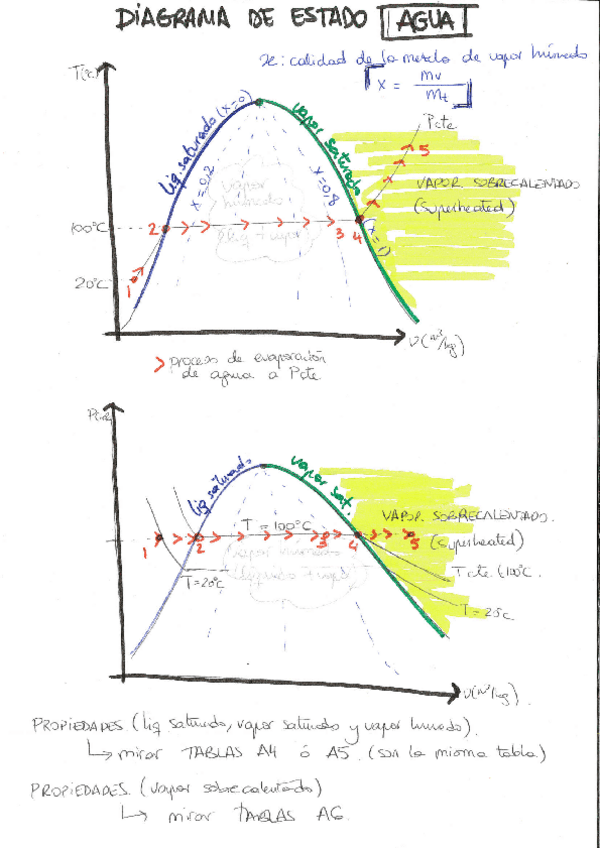 DIAGRAMA DE ESTADO AGUA
x: calidad de la mezcla de vapor húmedo
x = mv / mt
T(ºC)
liq. saturado (x=0)
vapor saturado
x=0.2
x=0.8
Pcte
5
vapor húmedo
líq + vapor
VAPOR. SOBRECALENTADO
(superheated)
100ºC
2
3
4
(x=1)
20ºC
1
v(m³/kg)
> proceso de evaporación
de agua a Pcte
liq saturado
vapor sat.
VAPOR. SOBRECALENTADO.
(superheated)
T = 100ºC
1
2
3
4
5
vapor húmedo
T=20ºC
T cte (100ºC.
T = 20ºC
v(m³/kg)
PROPIEDADES. (liq saturado, vapor saturado y vapor humedo).
mirar TABLAS A4 ó A5. (son la misma tabla)
PROPIEDADES. (vapor sobrecalentado)
mirar TABLAS A6.